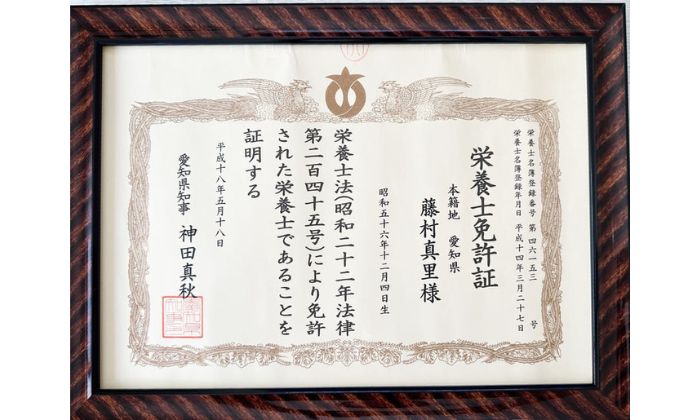 栄養士名簿登録番号 第四六一五三 号
栄養士名簿登録年月日 平成十四年三月二十七日
栄養士免許証
本籍地 愛知県
藤村真里様
昭和五十六年十二月四日生
栄養士法(昭和二十二年法律
第二百四十五号)により免許
された栄養士であることを
証明する
平成十八年五月十八日
愛知県知事 神田真秋